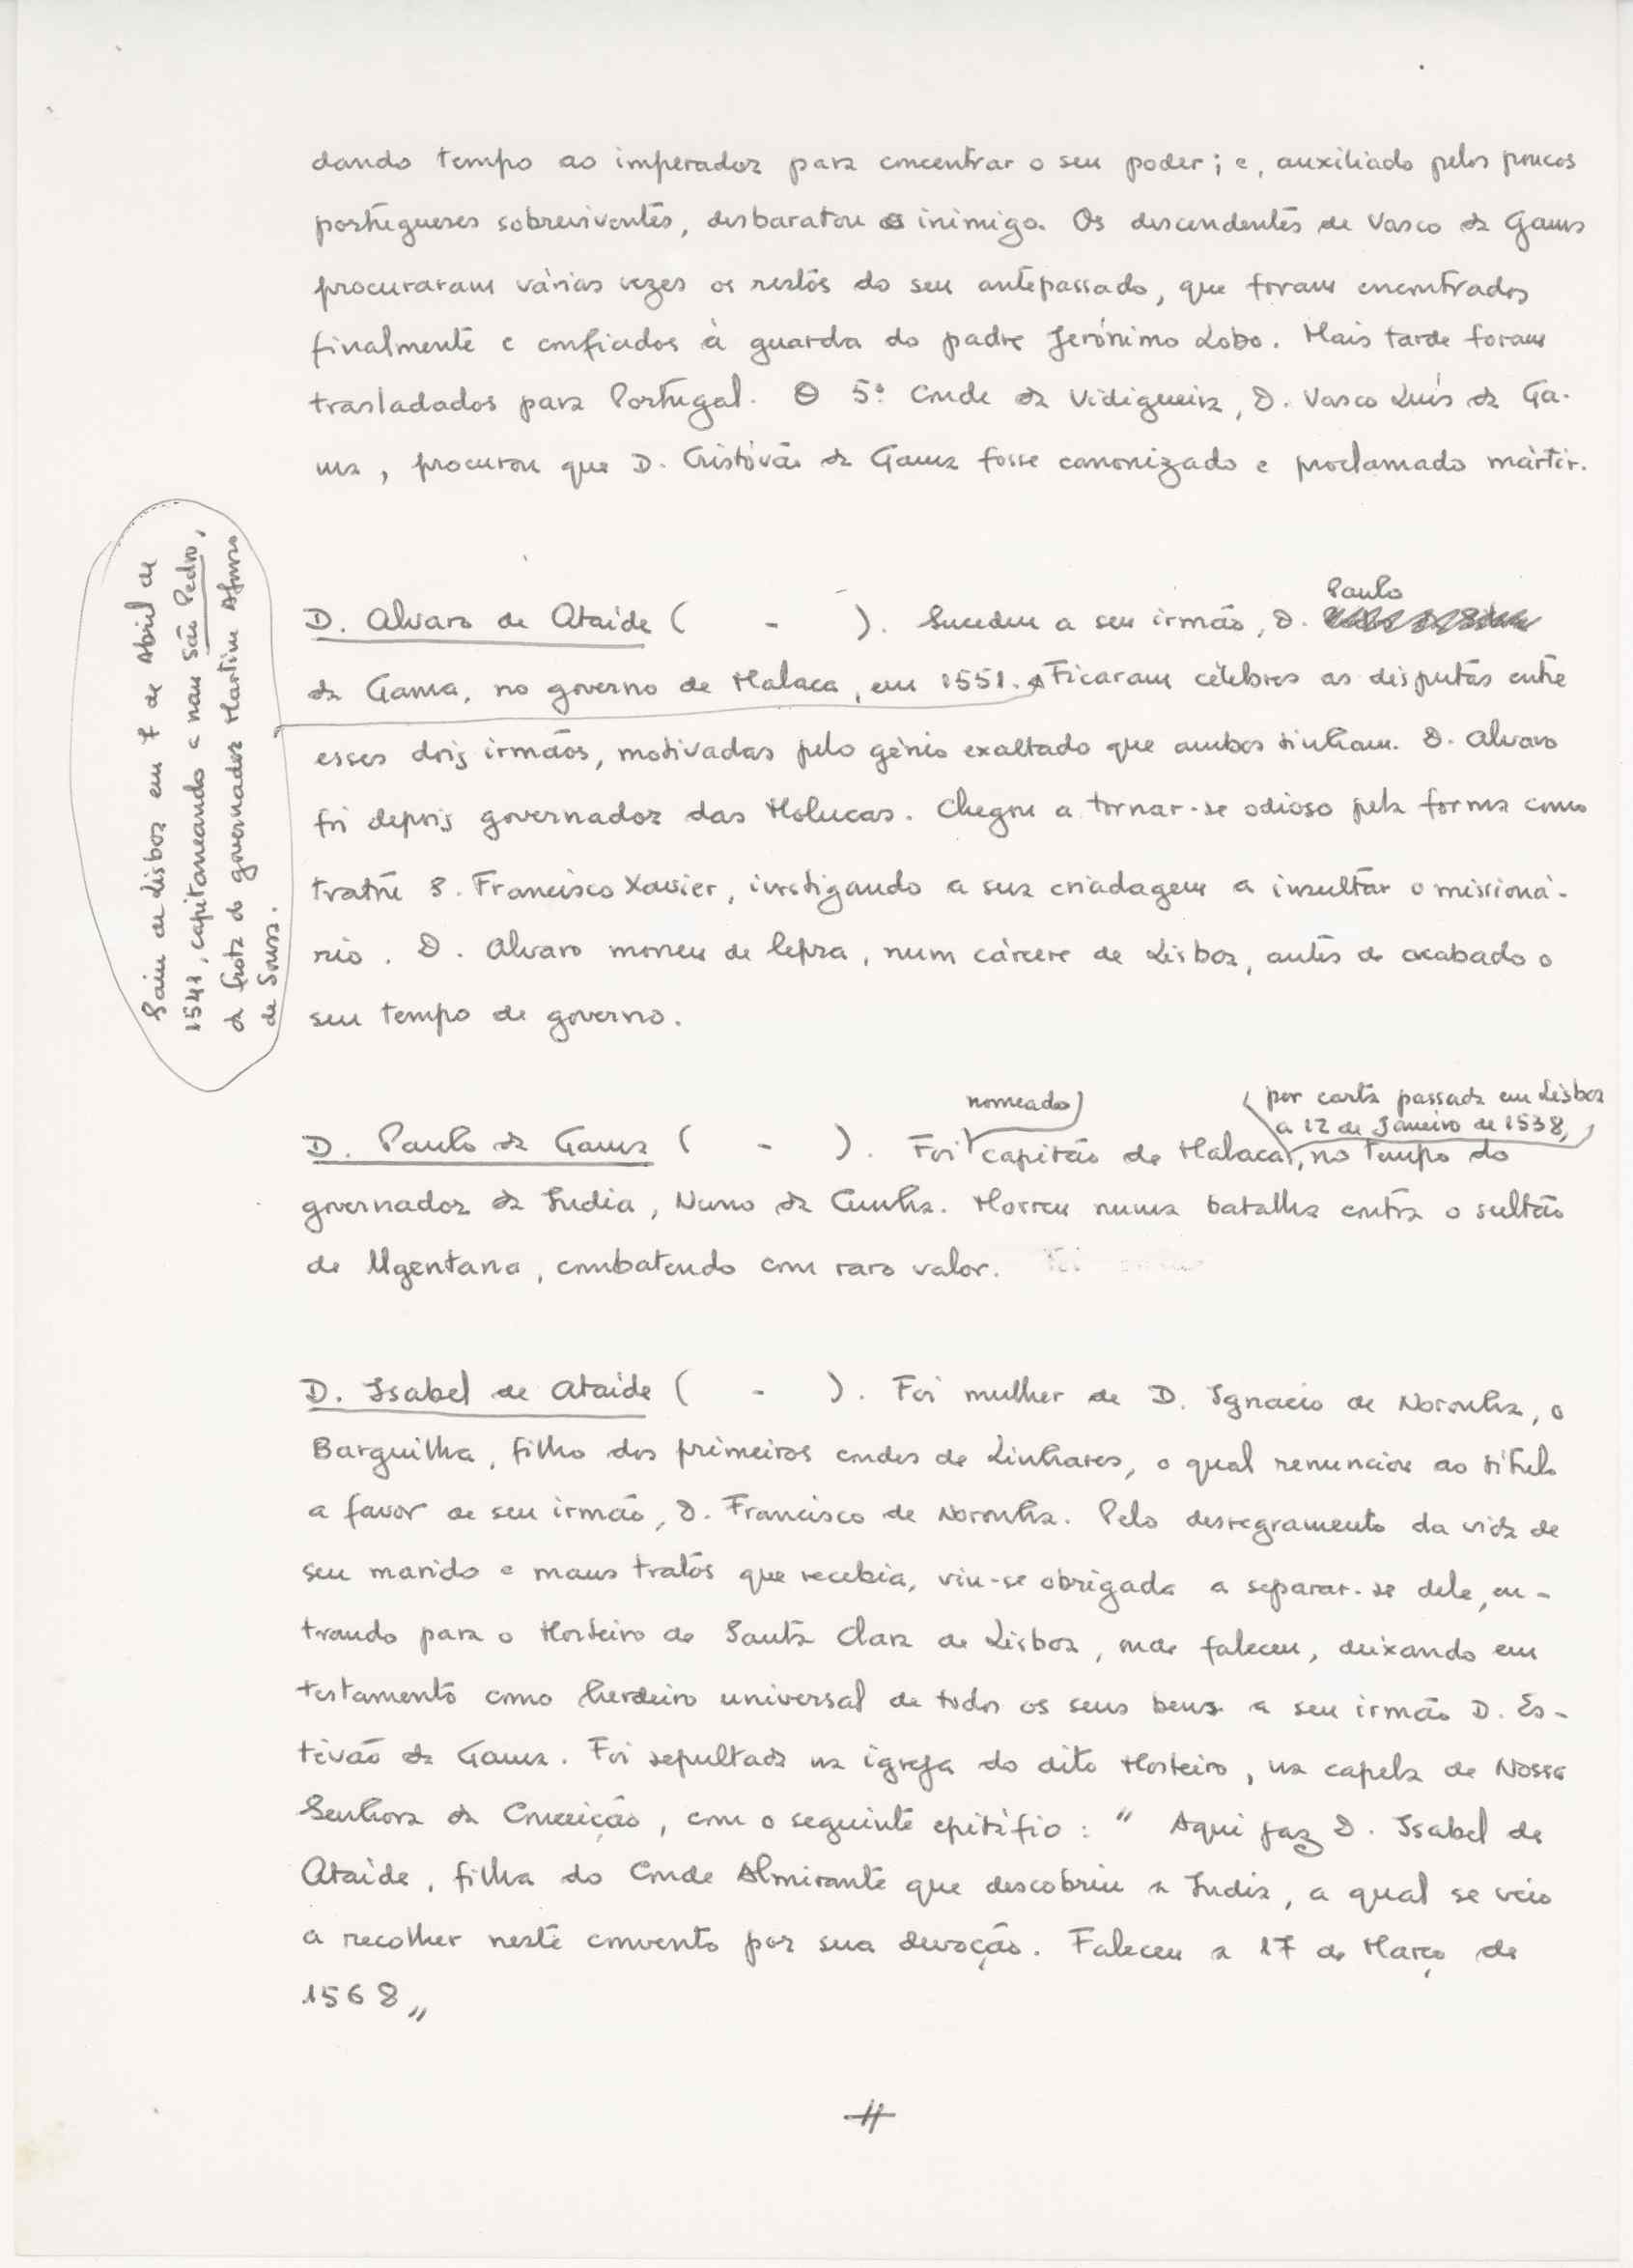 dando tempo ao imperador para concentrar o seu poder; e, auxiliado pelos poucos
portugueses sobreviventes, desbaratou o inimigo. Os descendentes de Vasco da Gama
procuraram várias vezes os restos do seu antepassado, que foram encontrados
finalmente e confiados à guarda do padre Jerónimo Lobo. Mais tarde foram
trasladados para Portugal. O 5º Conde da Vidigueira, D. Vasco Luís da Ga-
ma, procurou que D. Cristóvão da Gama fosse canonizado e proclamado mártir.
Saiu de Lisboa em 7 de Abril de
1541, capitaneando a nau São Pedro,
da frota do governador Martim Afonso
de Sousa.
Paulo
D. Alvaro de Ataíde ( - ). Sucedeu a seu irmão, D.
da Gama, no governo de Malaca, em 1551. Ficaram célebres as disputas entre
esses dois irmãos, motivadas pelo génio exaltado que ambos tinham. D. Alvaro
foi depois governador das Molucas. Chegou a tornar-se odioso pela forma como
tratou S. Francisco Xavier, instigando a sua criadagem a insultar o missioná-
rio. D. Alvaro morreu de lepra, num cárcere de Lisboa, antes de acabado o
seu tempo de governo.
nomeado
por carta passada em Lisboa
a 12 de Janeiro de 1538,
D. Paulo da Gama ( - ). Foi capitão de Malaca, no tempo do
governador da India, Nuno da Cunha. Morreu numa batalha contra o sultão
de Ugentana, combatendo com raro valor.
D. Isabel de Ataíde ( - ). Foi mulher de D. Ignacio de Noronha, o
Barguilha, filho dos primeiros condes de Linhares, o qual renunciou ao título
a favor de seu irmão, D. Francisco de Noronha. Pelo desregramento da vida de
seu marido e maus tratos que recebia, viu-se obrigada a separar-se dele, en-
trando para o Mosteiro de Santa Clara de Lisboa, onde faleceu, deixando em
testamento como herdeiro universal de todos os seus bens a seu irmão D. Es-
tevão da Gama. Foi sepultada na igreja do dito Mosteiro, na capela de Nossa
Senhora da Conceição, com o seguinte epitáfio: " Aqui jaz D. Isabel de
Ataíde, filha do Conde Almirante que descobriu a India, a qual se veio
a recolher neste convento por sua devoção. Faleceu a 17 de Março de
1568"